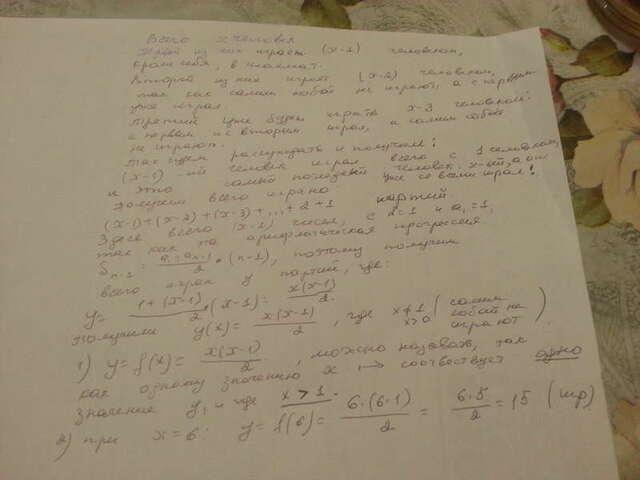 Всего x человек
Первый из них играет (x-1) человеком,
кроме себя, в шахмат.
Второй из них играет (x-2) человеком,
так как самим собой не играют, а с первым
уже играл.
Третий уже будет играть x-3 человеком:
с первым и с вторым играл, а самим собой
не играют.
Так будем рассуждать и получаем:
(x-1)-ый человек играл всего с 1 человеком,
и это самый последний человек x-ый, а он
уже со всеми играл!
Получим всего играно партий.
(x-1)+(x-2)+(x-3)+...+2+1
Здесь всего (x-1) чисел, с d=1 и a₁=1,
так как это арифметическая прогрессия.
Sₙ₋₁ = a₁+aₙ₋₁/2 · (n-1), поэтому получим
всего играх y партий, где:
y = 1+(x-1)/2 · (x-1) = x(x-1)/2.
Получили y(x) = x(x-1)/2, где x≠1 x>0 (самим собой не играют)
1) y=f(x)= x(x-1)/2, можно назвать, так
как одному значению x ↦ соотвествует одно
значение y, и где x>1.
2) при x=6: y=f(6)= 6·(6-1)/2 = 6·5/2 = 15 (игр)